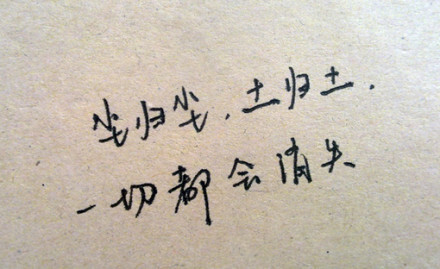 尘归尘，土归土，
一切都会消失